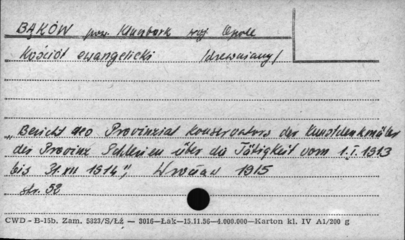 BĄKÓW pow. Kluczbork woj. Opole
Kościół ewangelicki /drewniany/
"Bericht des Provinzial Konservators der Kunstdenkmäler
der Provinz Schlesien über die Tätigkeit vom 1.I.1913
bis 31.XII 1914" Wrocław 1915
str. 52
CWD - B-15b. Zam. 5823/S/Łż — 2016-Łak-15.11.56-4.000.000-Karton kl. IV A1/200 g